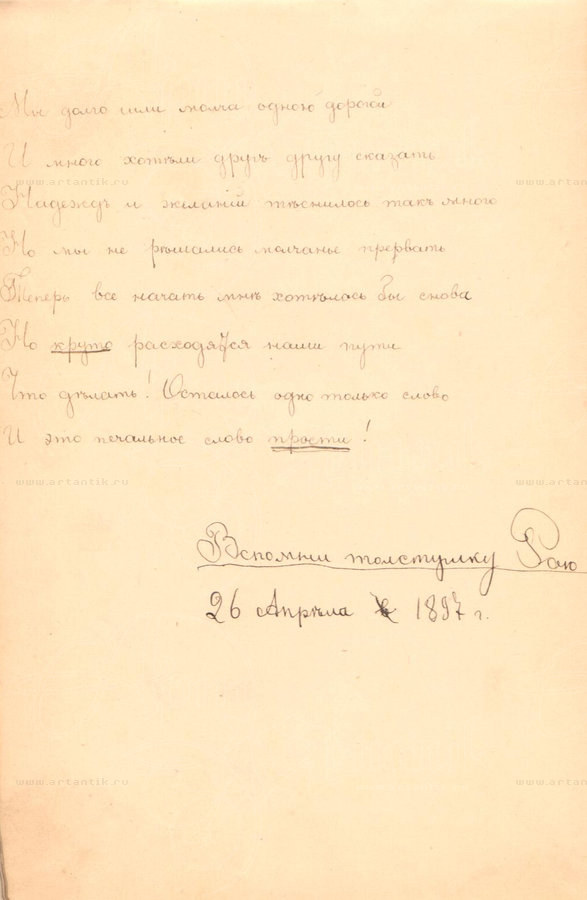 Мы долго шли молча одною дорогой
И много хотѣли другъ другу сказать
www.artantik.ru www.artantik.ru
Надеждъ и желаній тѣснилось такъ много
Но мы не рѣшались молчанье прервать
Теперь все начать мнѣ хотѣлось бы снова
Но круто расходятся наши пути
Что дѣлать! Осталось одно только слово
И это печальное слово прости!
www.artantik.ru www.artantik.ru
Вспомни толстушку Раю
26 Апрѣля 1897 г.
www.artantik.ru www.artantik.ru